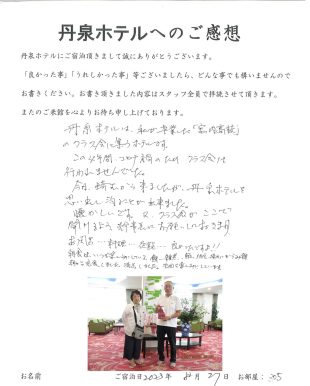 丹泉ホテルへのご感想
丹泉ホテルにご宿泊頂きまして誠にありがとうございます。
「良かった事」「うれしかった事」等ございましたら、どんな事でも構いませんので
お書きください。お書き頂きました内容はスタッフ全員で拝読させて頂きます。
またのご来館を心よりお待ち申し上げております。
丹泉ホテルは、私が卒業した「宮内高校」
のクラス会に集うホテルです。
この4年間、コロナ禍のため クラス会は
行われませんでした。
今日、埼玉から来ましたが、丹泉ホテルを
思い出し 泊ることが出来ました。
懐かしいです。又、クラス会がここで
お風呂... 料理...
お名前
ご宿泊日2023年 月27日
お部屋：205